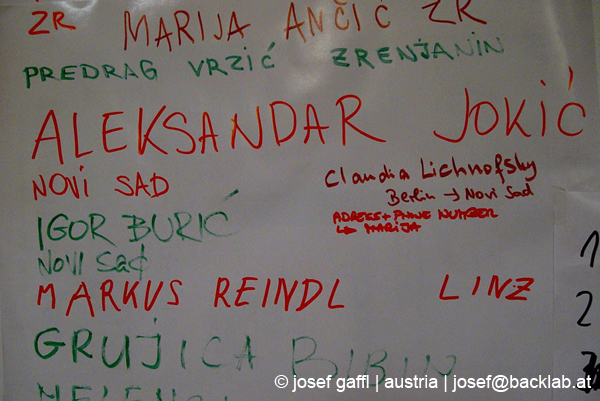 ZR MARIJA ANČIĆ ZR
PREDRAG VRZIĆ ZRENJANIN
ALEKSANDAR JOKIĆ
NOVI SAD
Claudia Lichnofsky
Berlin → Novi Sad
ADRESS + PHONE NUMBER
↳ MARIJA
IGOR BURIĆ
NOVI SAD
MARKUS REINDL LINZ
GRUJICA BIBIN
1
2
© josef gaffl | austria | josef@backlab.at